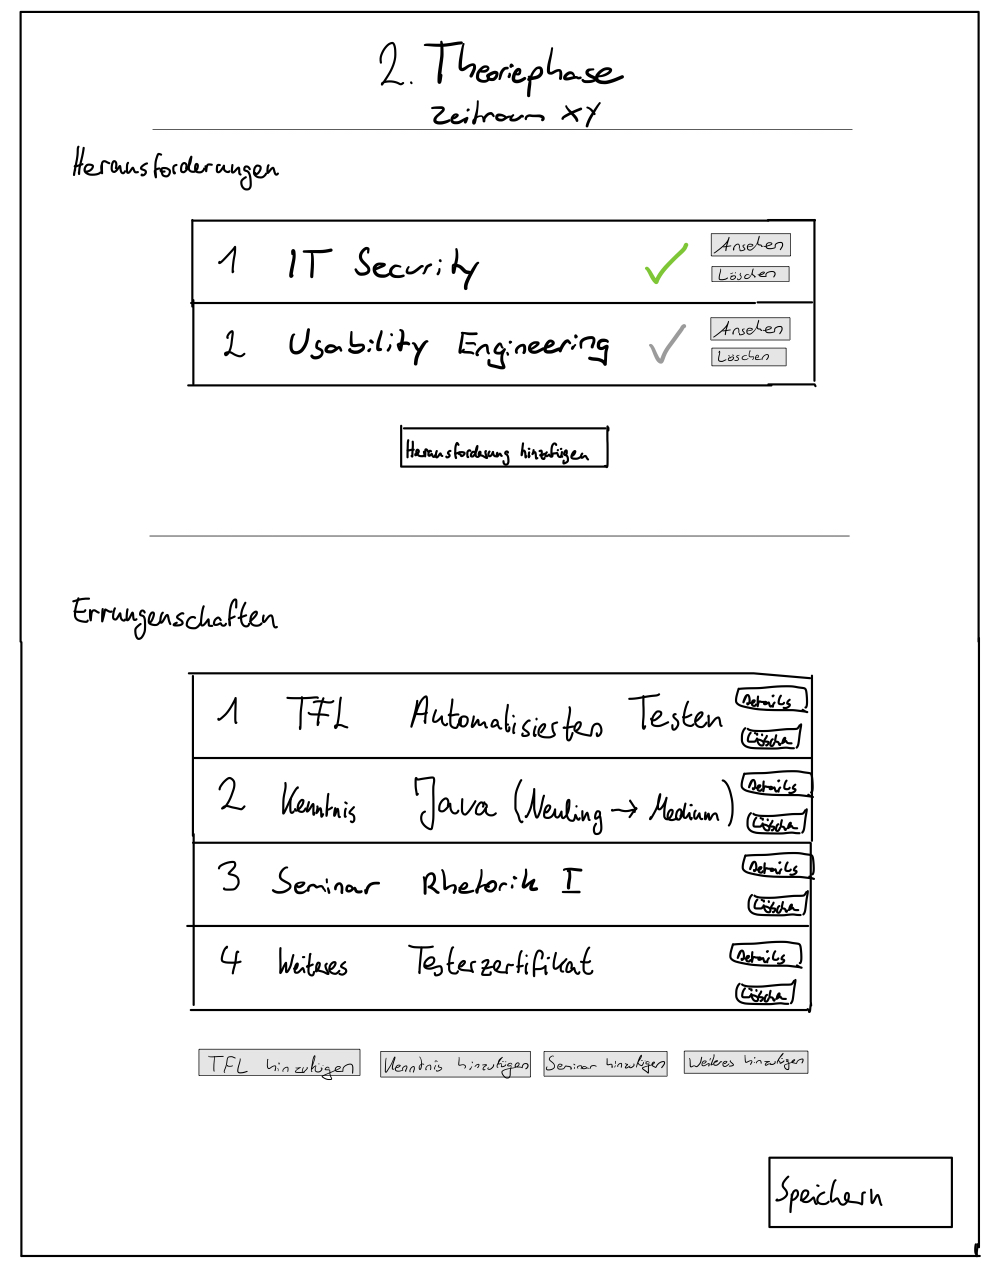 2. Theoriephase
Zeitraum XY
Herausforderungen
1 IT Security Ansehen
Löschen
2 Usability Engineering Ansehen
Löschen
Herausforderung hinzufügen
Errungenschaften
1 TFL Automatisiertes Testen Details
Löschen
2 Kenntnis Java (Neuling → Medium) Details
Löschen
3 Seminar Rhetorik I Details
Löschen
4 Weiteres Testerzertifikat Details
Löschen
TFL hinzufügen Kenntnis hinzufügen Seminar hinzufügen Weiteres hinzufügen
Speichern